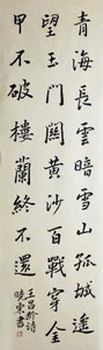 青海長雲暗雪山孤城遙
望玉門關黃沙百戰穿金
甲不破樓蘭終不還
王昌齡詩
曉東書